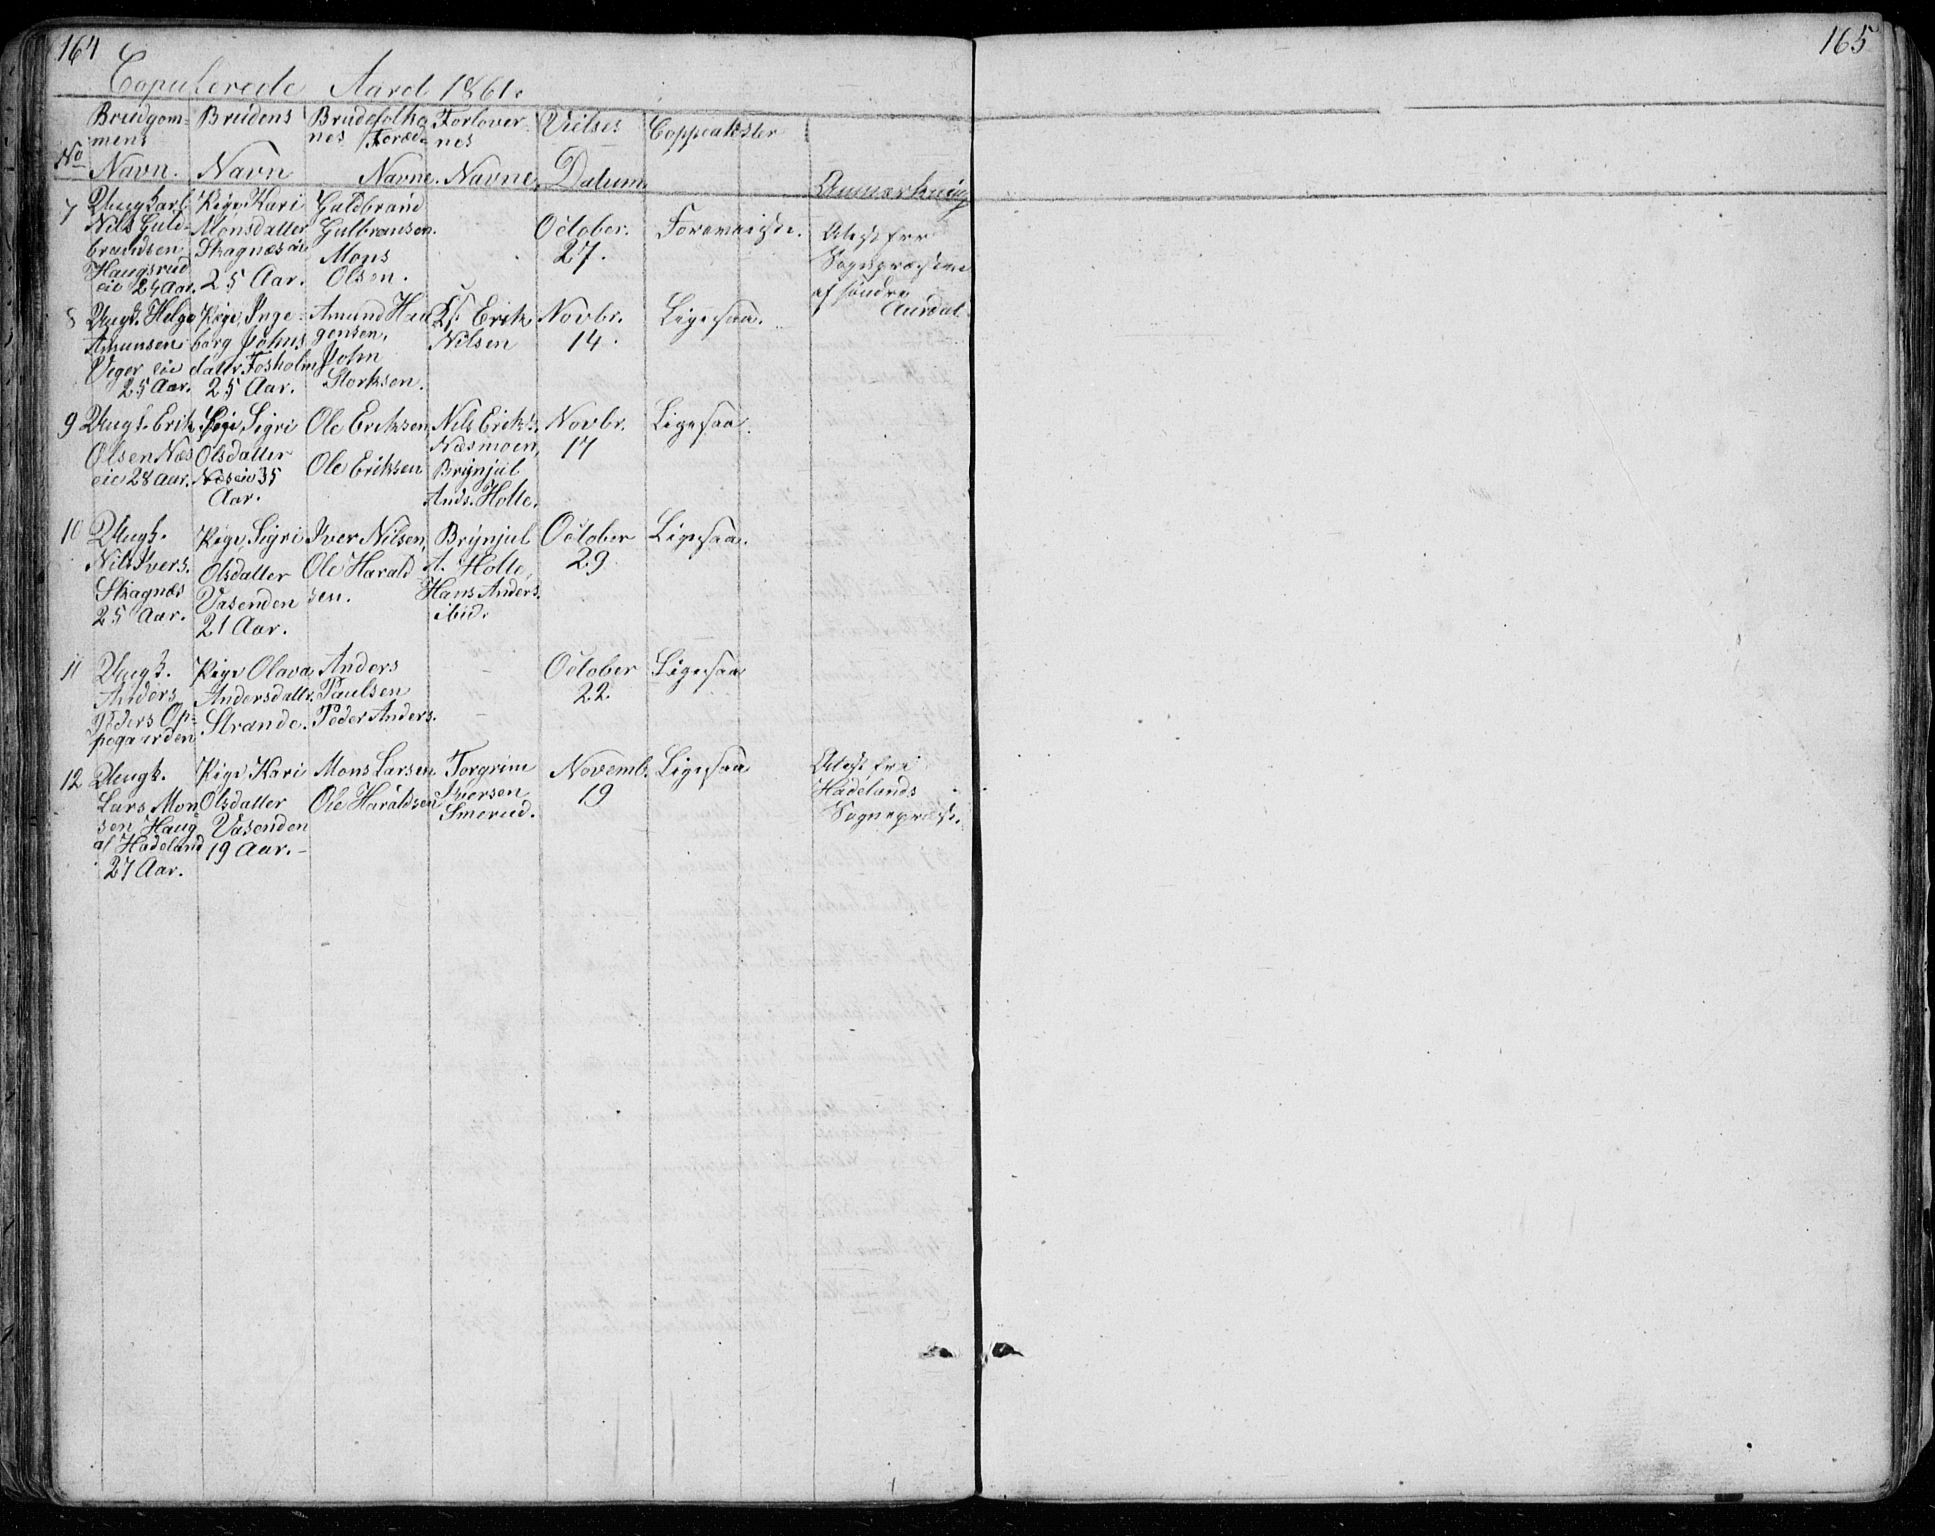 164
165
Copulerede Aaret 1861.
No
Brudgom-
mens
Navn.
Brudens
Navn
Brudefolke
nes Foræd-
Navne.
Forlover-
nes
Navne.
Vielses
Datum.
Coppeatester
Anmærkning
7
Ungkarl
Nils Guld-
brandsen
Haugsrud
eie 24 Aar.
Pige Kari
Monsdatter
Skagnæs eie
25 Aar.
Guldbrand
Gulbransen.
Mons
Olsen.
October.
27.
Foreviiste.
Attest fra
Sognepræstene
af søndre
Aurdal.
8
Ungk. Helge
Amunsen
Veger eie
25 Aar.
Pige, Inge-
borg Johns
dattr. Fosholm
25 Aar.
Amund Hel
gensen,
John
Storksen.
Erik
Nilsen
Novbr.
14.
Ligesaa.
9
Ungk. Erik
Olsen Næs
eie 28 Aar.
Pige Sigri
Olsdatter
Næs eie 35
Aar.
Ole Eriksen
Ole Eriksen
Nils Eriks.
Næsmoen,
Brynjul
Ands. Holte.
Novbr.
17
Ligesaa.
10
Ungk.
Nils Ivers.
Skagnæs
25 Aar.
Pige, Sigri
Olsdatter
Vasenden
21 Aar.
Iver Nilsen,
Ole Harald
sen.
Brynjul
A. Holte,
Hans Anders.
ibid.
October
29
Ligesaa.
11
Ungk.
Anders
Peders Op-
pegaarden
Pige Olava
Andersdattr.
Strande.
Anders
Paulsen
Peder Anders.
October
22.
Ligesaa
12
Ungk.
Lars Mon
sen Haug
af Hadeland
27 Aar.
Pige Kari
Olsdatter
Vasenden
19 Aar.-
Mons Larsen
Ole Haraldsen
Torgrim
Iversen
Smerud.
Novemb.
19
Ligesaa
Attest fra
Hadelands
Sognepræst.